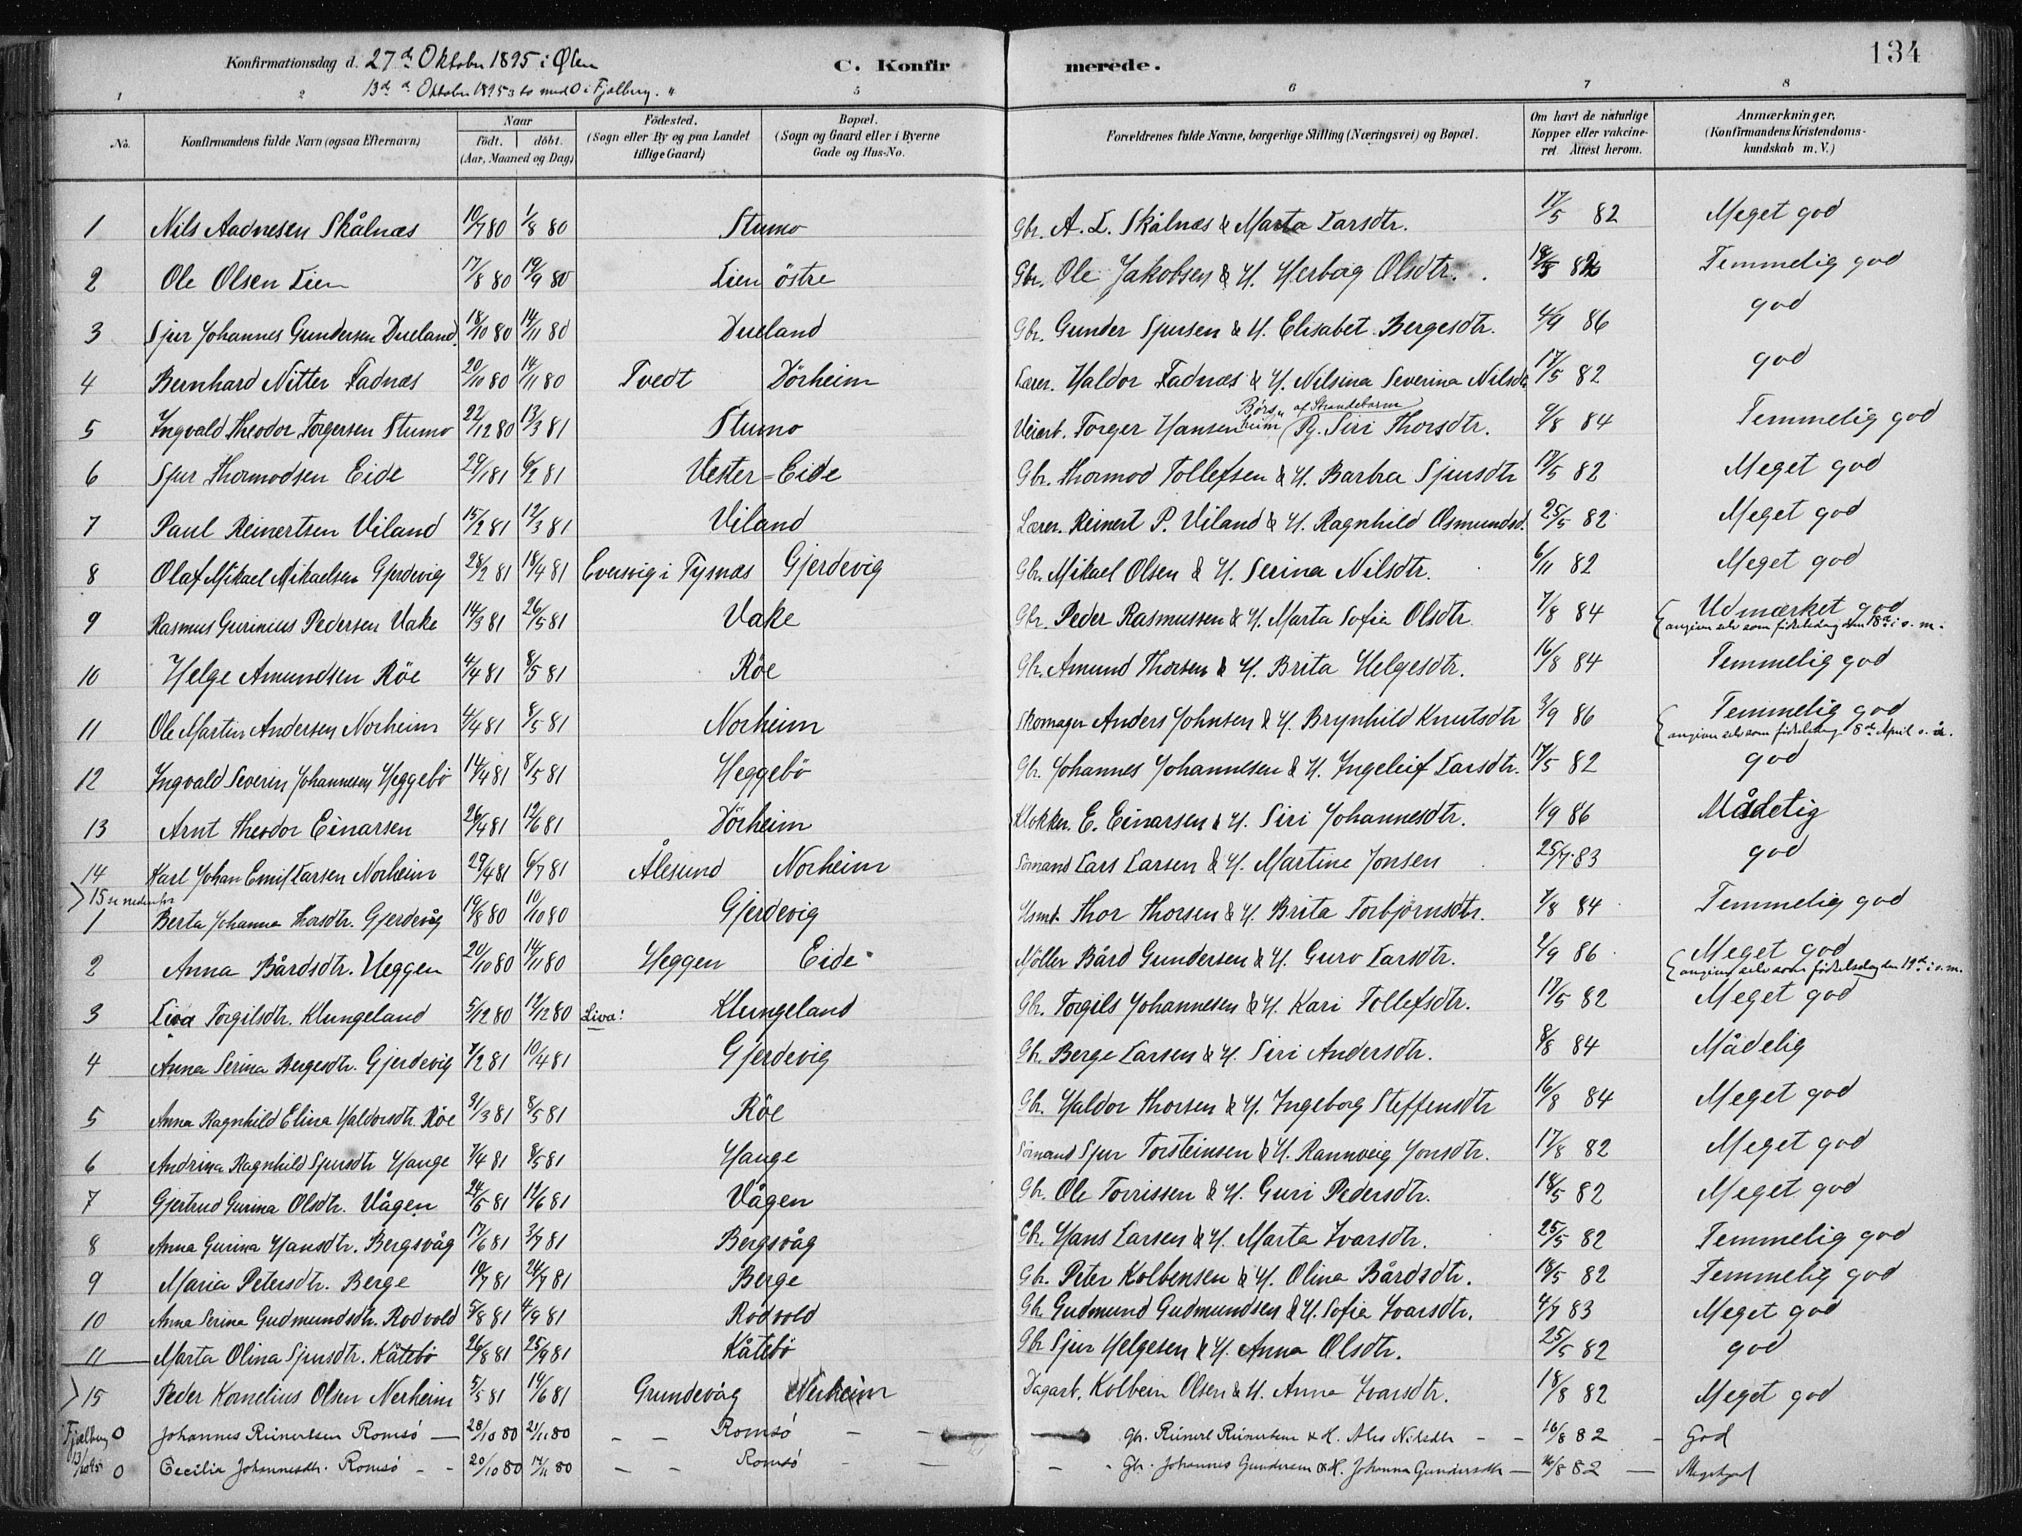 Konfirmationsdag d. 27de Oktober 1895 i Ølen
C. Konfirmerede.
134
13de d Oktober 1895 to med O i Fjelberg.
1 2 5 6 7 8
No. Konfirmandens fulde Navn (ogsaa Efternavn) Naar født. døbt. (Aar, Maaned og Dag) Fødested. (Sogn eller By og paa Landet tillige Gaard) Bopæl. (Sogn og Gaard eller i Byerne Gade og Hus-No. Forældrenes fulde Navne, borgerlige Stilling (Næringsvei) og Bopæl. Om havt de naturlige Kopper eller vakcineret. Attest herom. Anmærkninger. (Konfirmandens Kristendomskundskab m. V.)
1 Nils Aadnesen Skålnæs 10/7 80 1/8 80 Stumo Gbr. A. L. Skålnæs & Marta Larsdtr. 17/5 82 Meget god
2 Ole Olsen Lien 17/8 80 19/9 80 Lien östre Gbr. Ole Jakobsen & H. Herborg Olsdtr. Temmelig god
3 Sjur Johannes Gundersen Dueland. 18/10 80 14/11 80 Dueland Gbr. Gunder Sjursen & H. Elisabet Bergesdtr. 4/9 86 god
4 Bernhard Nitter Fadnæs 20/10 80 14/11 80 Tvedt Dörheim Lærer. Haldor Fadnæs & H. Nilsina Severina Nilsdtr 17/5 82 god
5 Ingvald Theodor Torgersen Stumo 22/12 80 13/3 81 Stumo Veiarb. Torger Hansen Börsheim (Pg. Siri Thorsdtr. af Strandebarm 9/8 84 Temmelig god
6 Sjur Thormodsen Eide 29/1 81 6/2 81 Vester=Eide Gbr. Thormod Tollefsen & H. Barbra Sjursdtr 17/5 82 Meget god
7 Paul Reinertsen Viland 15/2 81 12/3 81 Viland Lærer. Reinert P. Viland & H. Ragnhild Osmundsd. 25/5 82 Meget god
8 Olaf Mikael Mikaelsen Gjerdevig 28/2 81 18/4 81 Eversvig i Tysnæs Gjerdevig Gbr. Mikael Olsen & H. Serina Nilsdtr. 6/11 82 Meget god
9 Rasmus Gurinius Pedersen Vake 14/3 81 26/5 81 Vake Gbr. Peder Rasmussen & H. Marta Sofie Olsdtr 7/8 84 Udmærket god
(angiver selv som fødselsdag den 18de i s. m.
10 Helge Amundsen Röe 4/4 81 8/5 81 Röe Gbr. Amund Thorsen & H. Brita Helgesdtr. 16/8 84 Temmelig god
11 Ole Martin Andersen Norheim 4/4 81 8/5 81 Norheim Skomager Anders Johnsen & H. Brynhild Knutsdtr 3/9 86 Temmelig god
(angiver selv som fødselsdag 8de April s. år.
12 Ingvald Severin Johannesen Heggebö 14/4 81 8/5 81 Heggebö Gbr. Johannes Johannesen & H. Ingeleif Larsdtr. 17/5 82 god
13 Arnt Theodor Einarsen 26/4 81 12/6 81 Dörheim Klokker. E. Einarsen & H. Siri Johannesdtr. 1/9 86 Mådelig
14 Karl Johan Emil Larsen Norheim 29/4 81 6/7 81 Ålesund Norheim Sömand Lars Larsen & H. Martine Jonsen 25/7 83 god
> 15 se nedenfor
1 Berta Johanna Thorsdtr. Gjerdevig 19/8 80 10/10 80 Gjerdevig Hsmd. Thor Thorsen & H. Brita Torbjørnsdtr. 7/8 84 Temmelig god
2 Anna Bårdsdtr. Heggen 21/10 80 14/11 80 Heggen Eide Möller Bård Gundersen & H. Guro Larsdtr. 2/9 86 Meget god
(angiver selv som fødselsdag den 19de i s. m.
3 Liva Torgilsdtr. Klungeland 5/12 80 19/12 80 Liva: Klungeland Gbr. Torgils Johannesen & H. Kari Tollefsdtr. 17/5 82 Meget god
4 Anna Serina Bergesdtr. Gjerdevig 7/2 81 10/4 81 Gjerdevig Gbr. Berge Larsen & H. Siri Andersdtr. 8/8 84 Mådelig
5 Anna Ragnhild Elina Haldorsdtr. Röe 31/3 81 8/5 81 Röe Gbr. Haldor Thorsen & H. Ingeborg Steffensdtr 16/8 84 Meget god
6 Andrina Ragnhild Sjursdtr Hauge 7/4 81 8/5 81 Hauge Sömand Sjur Torsteinsen & H. Rannveig Jonsdtr. 17/8 82 Meget god
7 Gjertrud Gurina Olsdtr. Vågen 24/5 81 12/6 81 Vågen Gbr. Ole Torrissen & H. Guri Pedersdtr. 18/5 82 Meget god
8 Anna Gurina Hansdtr. Bergsvåg 17/6 81 3/7 81 Bergsvåg Gbr. Hans Larsen & H. Marta Ivarsdtr. 25/5 82 Temmelig god
9 Maria Petersdtr. Berge 10/7 81 24/7 81 Berge Gbr. Peter Kolbensen & H. Olina Bårdsdtr. 18/5 82 Temmelig god
10 Anna Serina Gudmundsdtr. Rodvold 5/8 81 4/9 81 Rodvold Gbr Gudmund Gudmundsen & H. Sofia Ivarsdtr. 4/7 83 Meget god
11 Marta Olina Sjursdtr. Kåtebö 26/8 81 25/9 81 Kåtebö Gbr Sjur Helgesen & H. Anna Olsdtr. 25/5 82 god
> 15 Peder Kornelius Olsen Nerheim 5/5 81 19/6 81 Grundevåg Nerheim Dagarb. Kolbein Olsen & H. Anna Ivarsdtr. 18/8 82 Meget god
Fjelberg O Johannes Reinertsen Romsö 28/10 80 21/11 80 Romsö Gbr. Reinert Reinertsen & H. Nilsdtr 16/8 82 God
13/10 95 O Cecilia Johannesdtr. Romsö 20/10 80 14/11 80 Romsö Gbr. Johannes Gundersen & H. Johanna Gundersdtr 16/8 82 Meget god